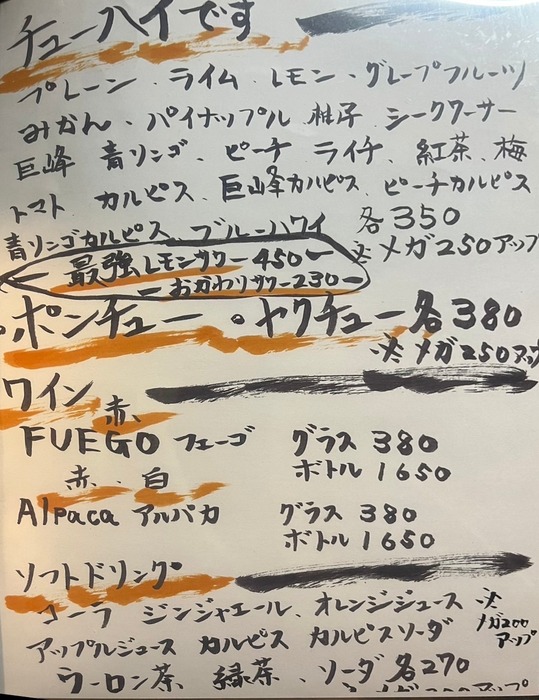 チューハイです
プレーン、ライム、レモン、グレープフルーツ
みかん、パイナップル 柚子 シークワーサー
巨峰 青リンゴ、ピーチ ライチ、紅茶、梅
トマト カルピス、巨峰カルピス、ピーチカルピス
青リンゴカルピス、ブルーハワイ 各350
※メガ250アップ
最強レモンサワー450
おかわりサワー230
・ポンチュー ・ヤクチュー各380
※メガ250アップ
ワイン
赤、
FUEGO フェーゴ グラス 380
ボトル 1650
赤、白
Alpaca アルパカ グラス 380
ボトル 1650
ソフトドリンク
コーラ ジンジャエール、オレンジジュース ※メガ200アップ
アップルジュース カルピス カルピスソーダ
ウーロン茶、緑茶、ソーダ 各270